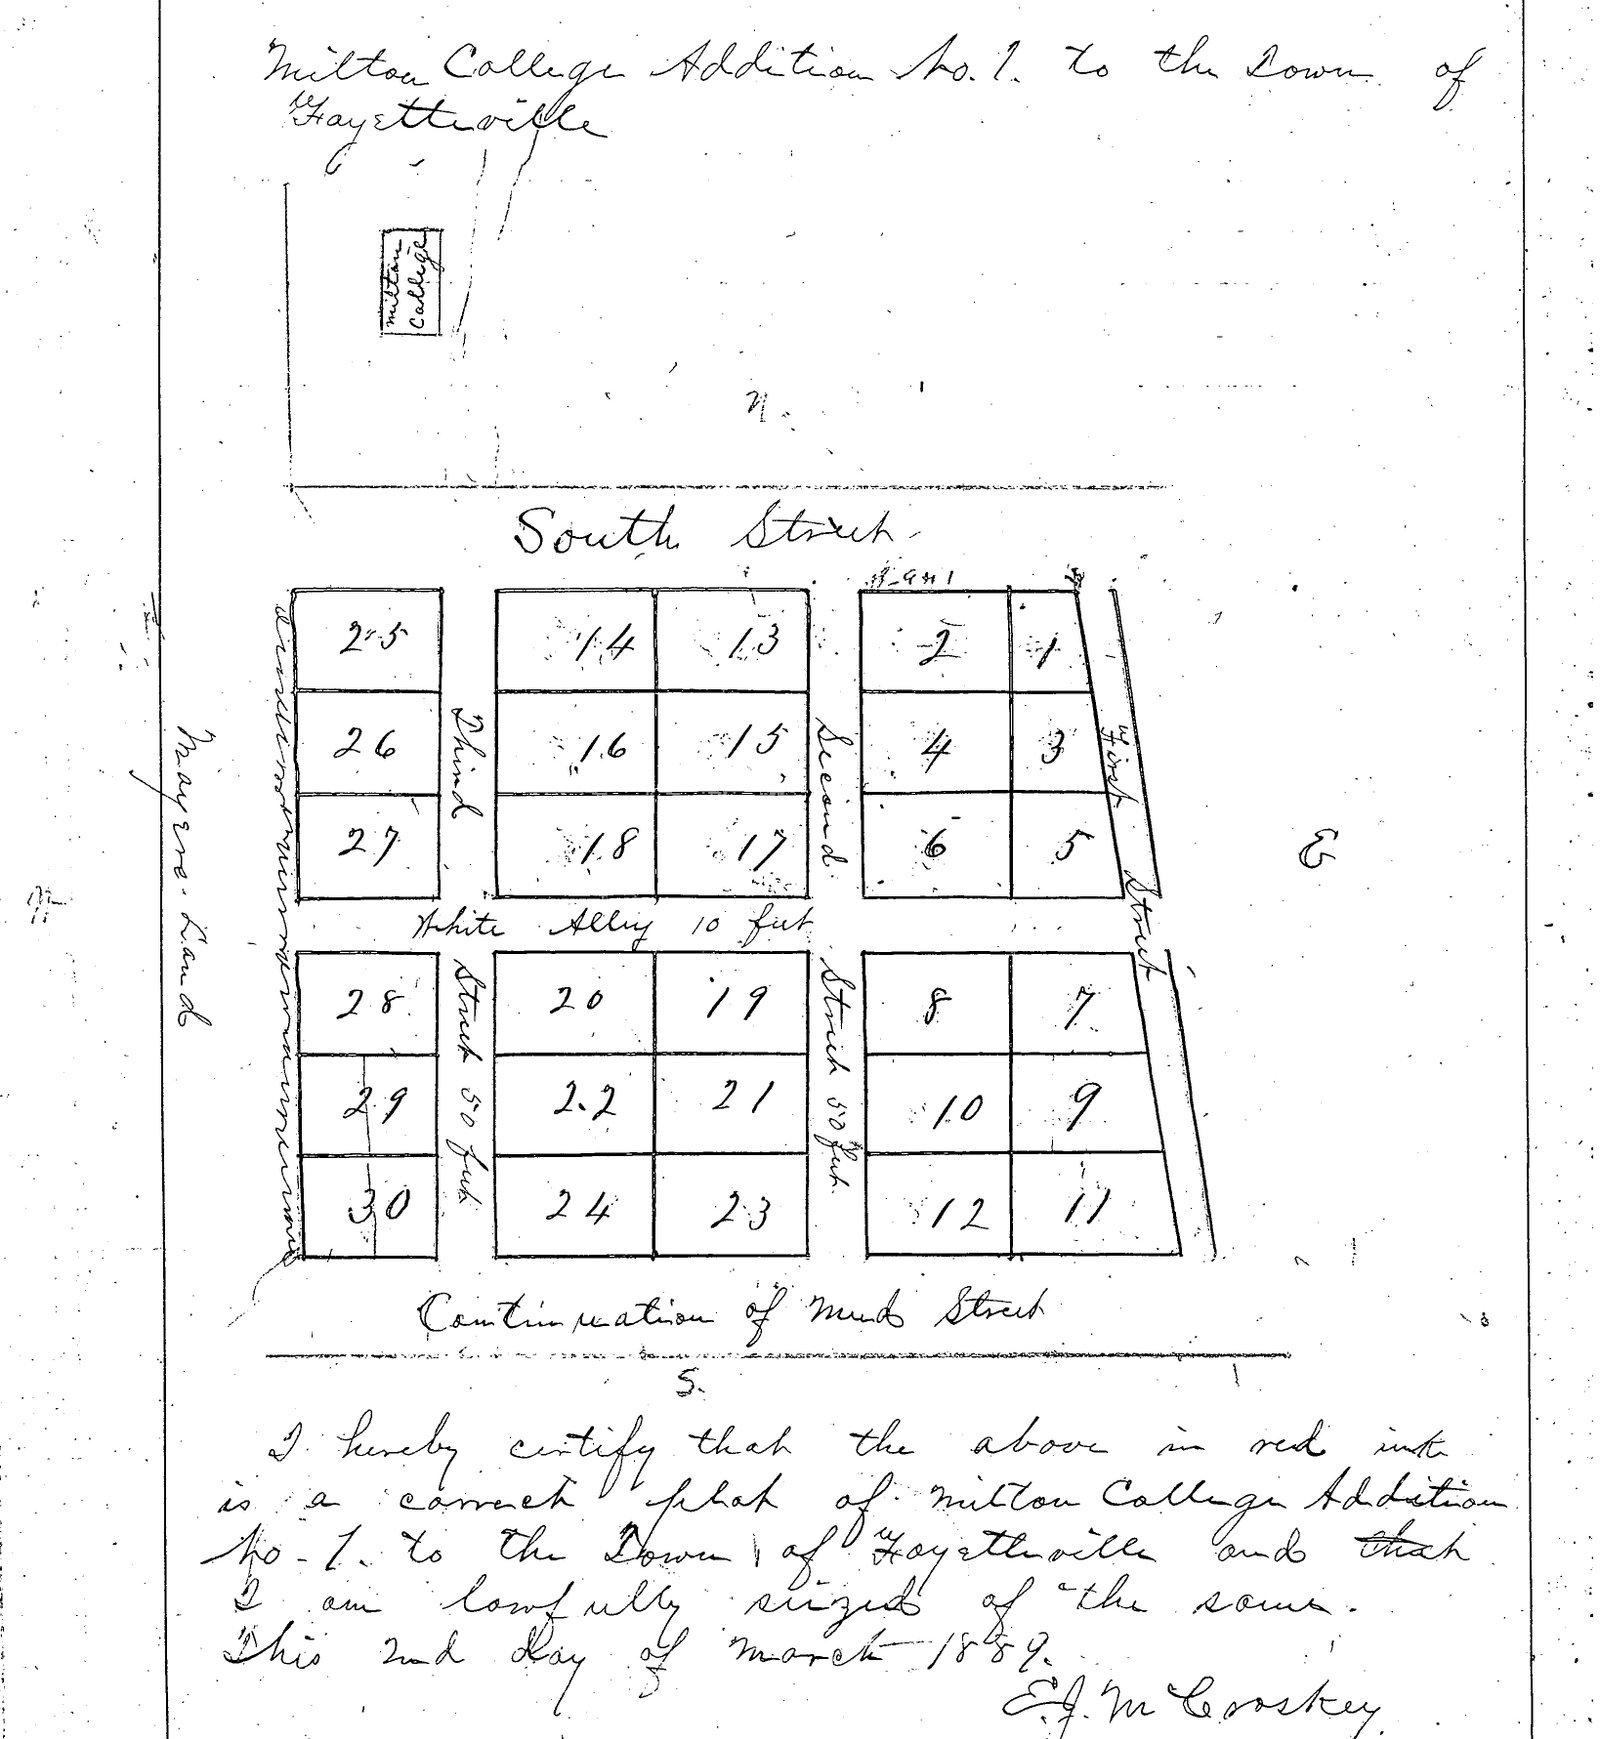 Milton College Addition No. 1. to the Town of
Fayetteville
Milton
College
N.
South Street
25
14
13
2
1
26
16
15
4
3
27
18
17
6
5
Third
Second
First
Mayers Land
E
White Alley 10 feet
Street
28
20
19
8
7
29
22
21
10
9
30
24
23
12
11
Street 50 feet
Street 50 feet
Continuation of Mud Street
S.
I hereby certify that the above in red ink
is a correct plat of Milton College Addition
No. 1. to the Town of Fayetteville and that
I am lawfully seized of the same.
This 2nd day of March 1889.
E. J. McCroskey